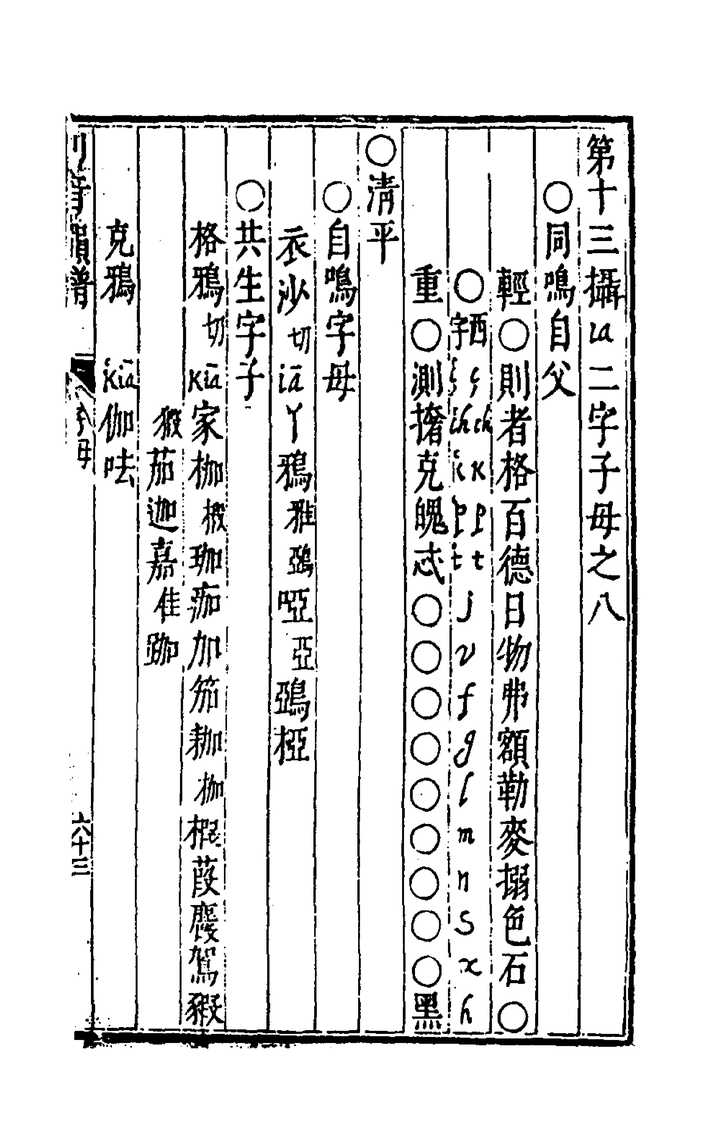 第十三攝ia二字子母之八
○同鳴自父
輕○則者格百德日物弗額勒麥搦色石○
○西字 ç ch k p t j v f g l m n s x h
重○測撦克魄忒○○○○○○○○○黑
○清平
○自鳴字母
衣沙切iā丫鴉雅鵶啞亞鵶椏
○共生字子
格鴉切kiā家枷椵珈痂加笳耞枷椵葭麚駕豭
猳茄迦嘉佳跏
克鴉ʻkiā伽呿
音韻譜 字母 六十三